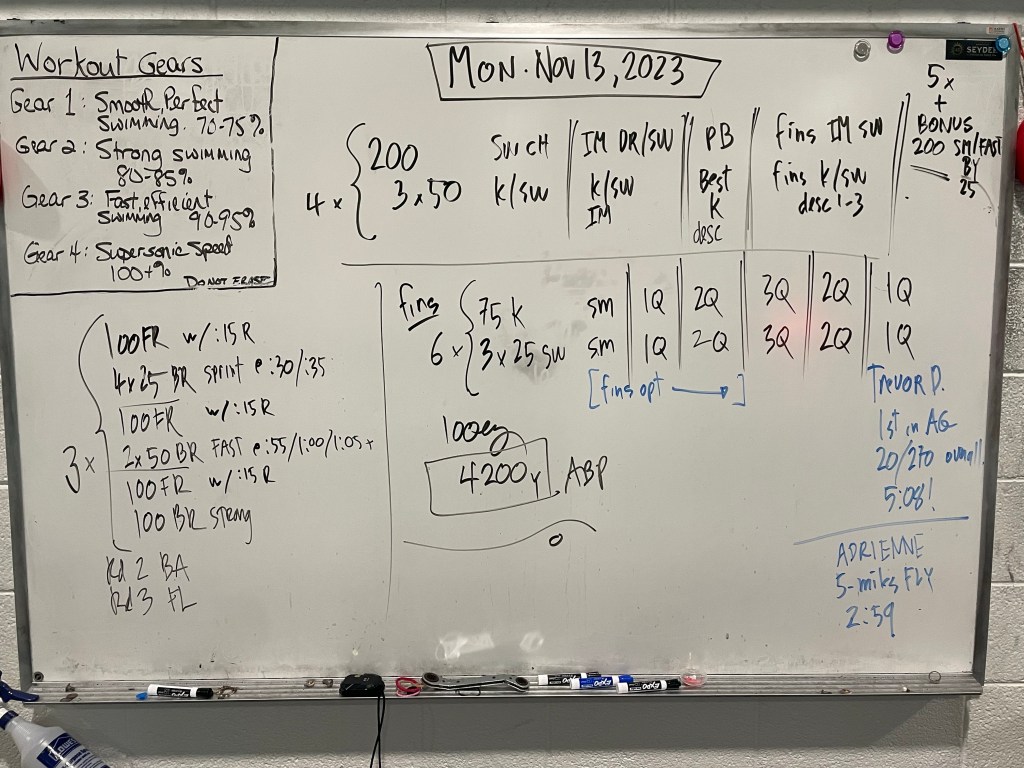 Workout Gears
Gear 1: Smooth, Perfect
Swimming. 70-75%
Gear 2: Strong swimming
80-85%
Gear 3: Fast, efficient
Swimming 90-95%
Gear 4: Supersonic Speed
100+%
DO NOT ERASE
MON. NOV 13, 2023
SEYDEL
4 x
200 SW CH IM DR/SW PB fins IM SW
3x50 K/SW K/SW IM Best K desc fins K/SW desc 1-3
5x
+
BONUS
200 SM/FAST
BY
25
fins
6 x
75 K sm 1Q 2Q 3Q 2Q 1Q
3 x 25 SW sm 1Q 2Q 3Q 2Q 1Q
[fins opt → ]
3 x
100 FR w/:15 R
4x25 BR sprint @ :30/:35
100 FR w/:15 R
2x50 BR FAST @ :55/1:00/1:05+
100 FR w/:15 R
100 BR strong
Rd 2 BA
Rd 3 FL
100 ez
4200y ABP
TREVOR D.
1st in AG
20/270 overall
5:08!
ADRIENNE
5-miles FLY
2:59
EXPO
EXPO
EXPO